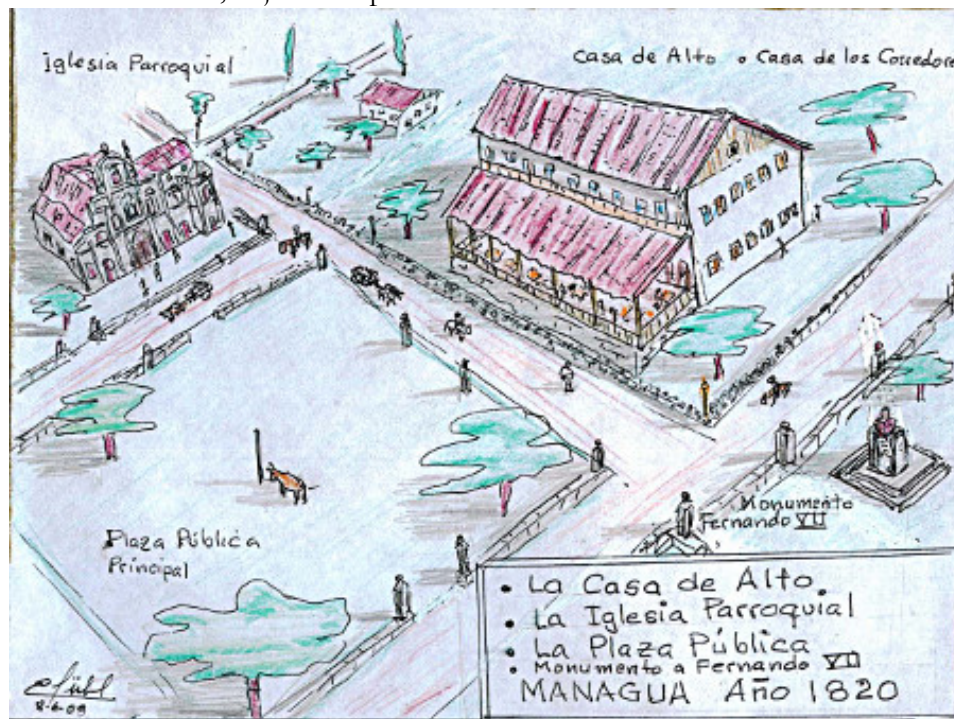 Iglesia Parroquial
Casa de Alto o Casa de los Corredore
Monumento
Fernando VII
Plaza Pública
Principal
• La Casa de Alto
• La Iglesia Parroquial
• La Plaza Pública
• Monumento a Fernando VII
MANAGUA Año 1820
8-6-09